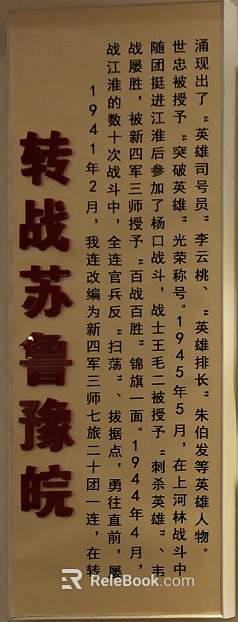 转战苏鲁豫皖
1941年2月，我连改编为新四军三师七旅二十团一连，在转
战江淮的数十次战斗中，全连官兵反“扫荡”、拔据点，勇往直前，屡
战屡胜，被新四军三师授予“百战百胜”锦旗一面。1944年4月，
随团挺进江淮后参加了杨口战斗，战士王毛二被授予“刺杀英雄”、韦
世忠被授予“突破英雄”光荣称号。1945年5月，在上河林战斗中
涌现出了“英雄司号员”李云桃、“英雄排长”朱伯发等英雄人物。
ReleBook.com